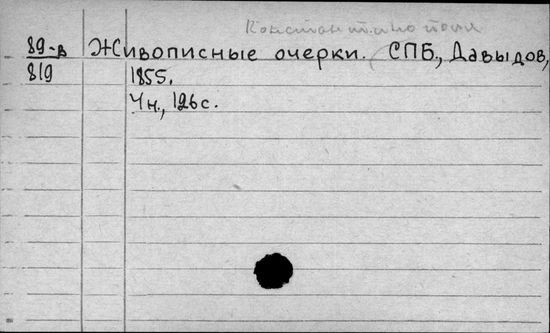 Константинополя
89-в Живописные очерки. СПБ., Давыдов,
819 1855.
4н., 126 с.